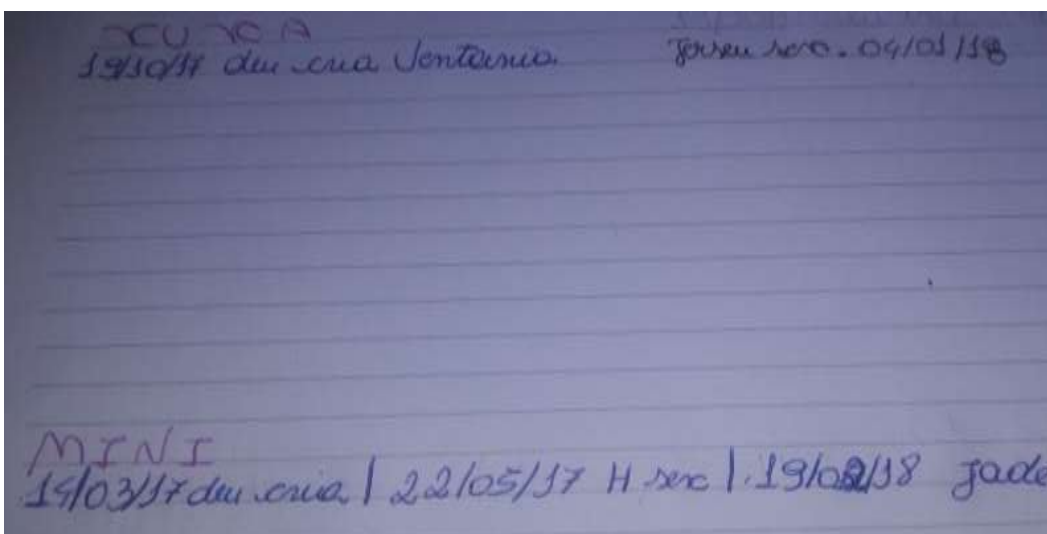 XUXA
19/10/17 deu cria Ventania Jersey sexo. 04/01/18
MINI
19/03/17 deu cria | 22/05/17 H sexo |. 19/02/18 Jade